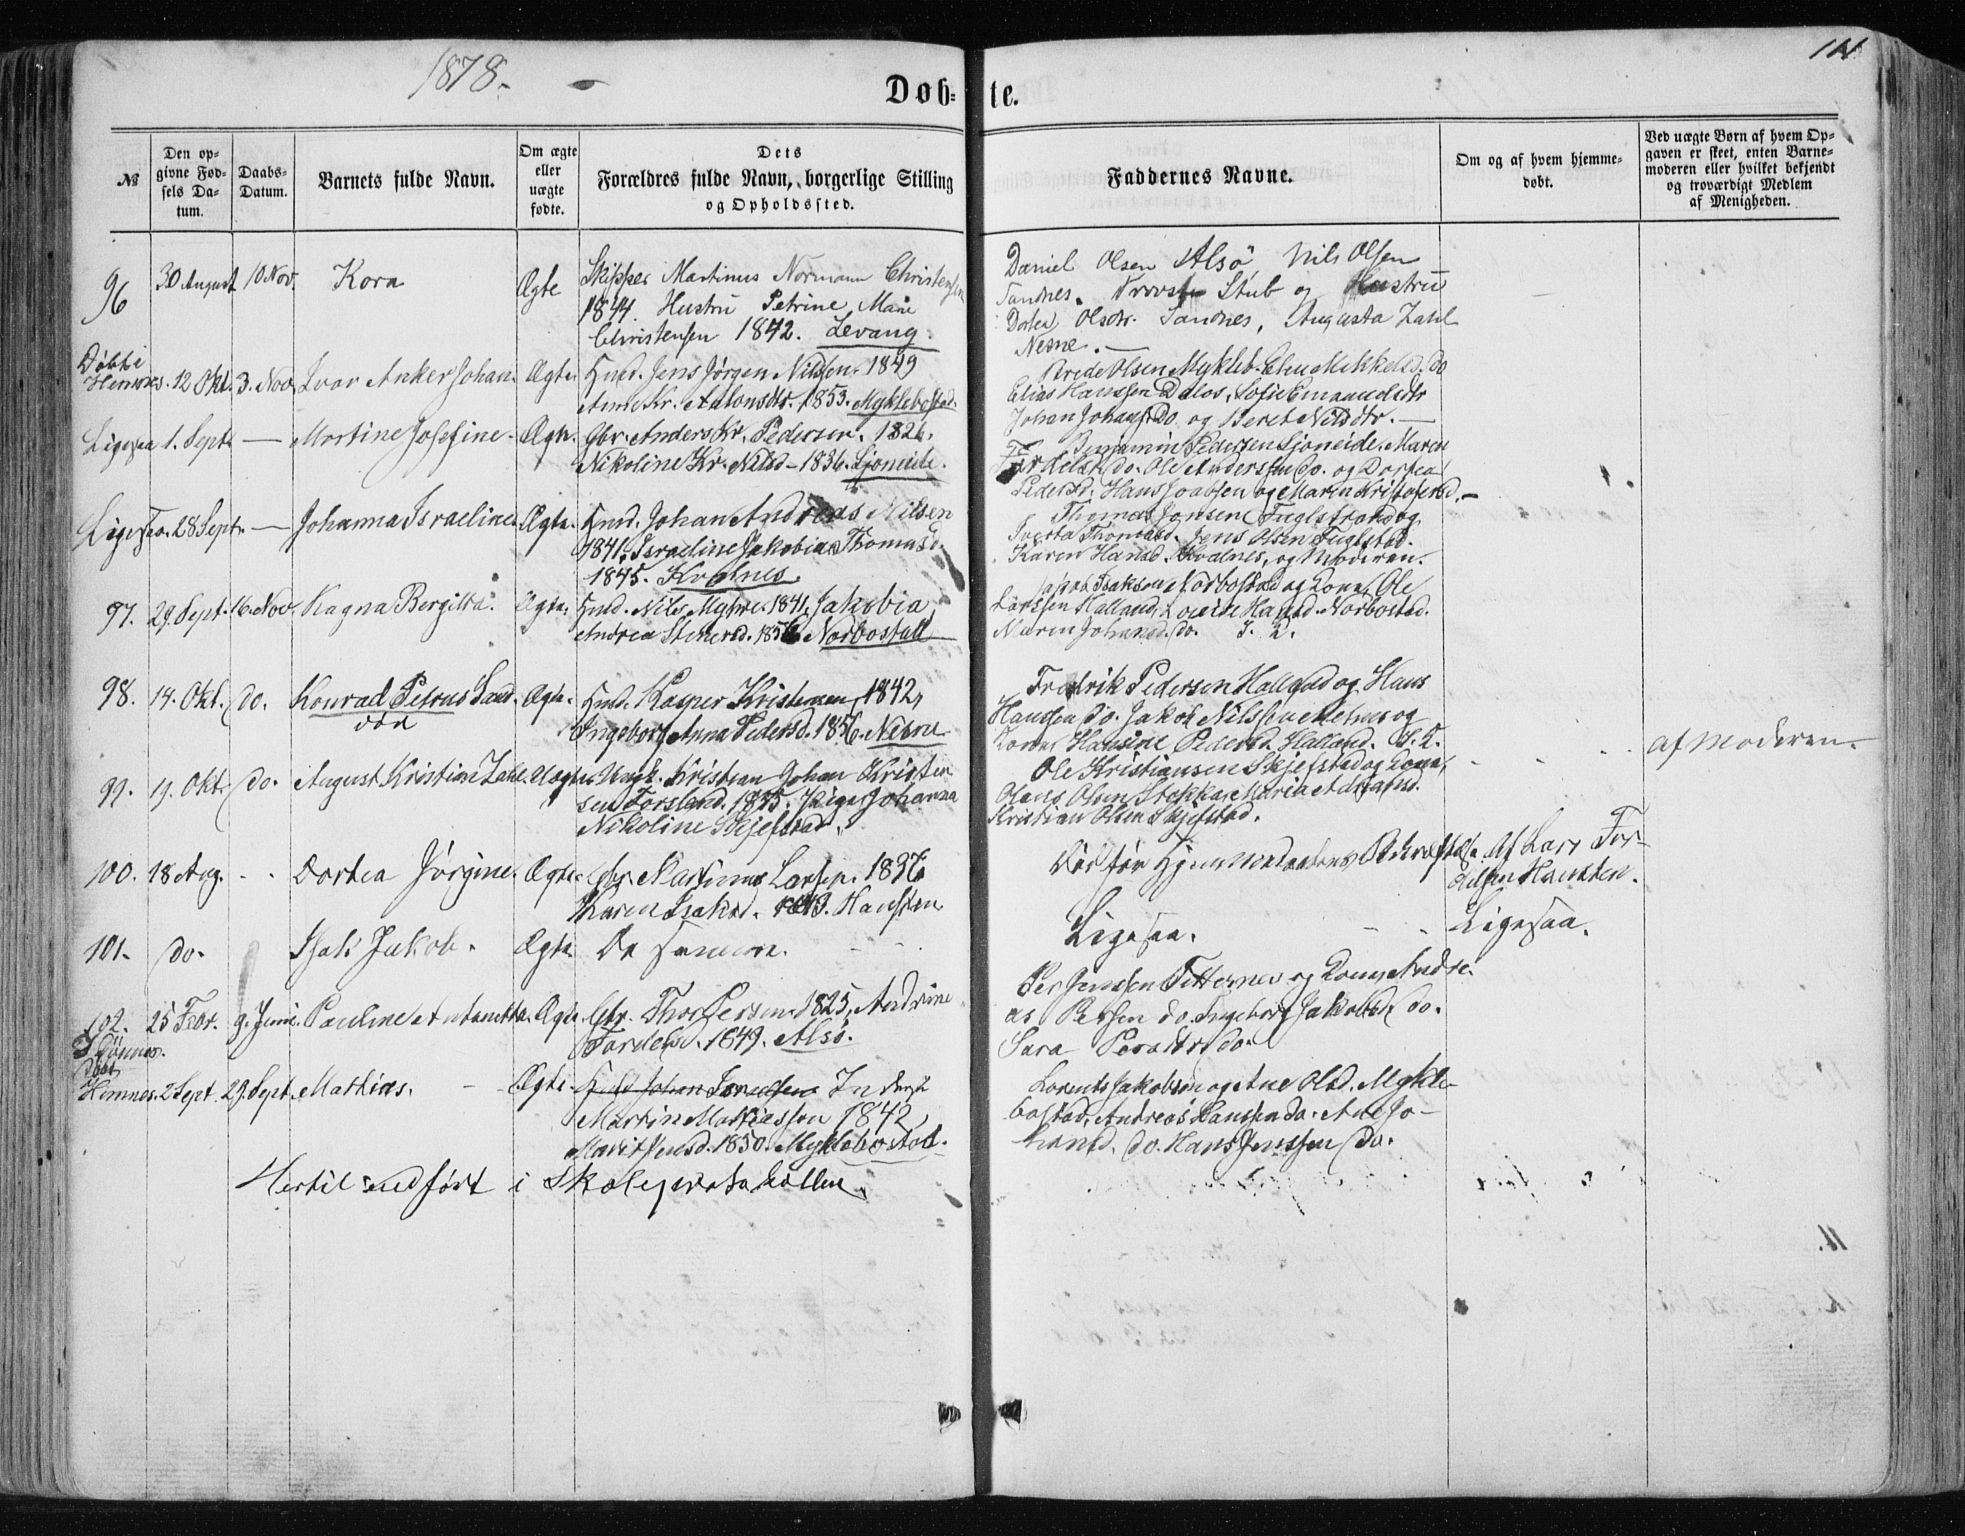 1878.
Døb=
te.
№
Den op-
givne Fød-
sels Da-
tum.
Daabs-
Datum.
Barnets fulde Navn.
Om ægte
eller
uægte
fødte.
Dets
Forældres fulde Navn, borgerlige Stilling
og Opholdssted.
Faddernes Navne.
Om og af hvem hjemme-
døbt.
Ved uægte Børn af hvem Op-
gaven er skeet, enten Barne-
moderen eller hvilket bekjendt
og troværdigt Medlem
af Menigheden.
96
30 August
10 Nov.
Kora
Ægte
Skipper Martinus Normann Christensen
1844. Hustru Petrine Marie
Christensen 1842. Levang.
Daniel Olsen Alsö Nils Olsen
Sandnes. Provst Stub og Hustru
Olsdr. Sandnes, Augusta Zahl
Nesne.
Døbt i
Hemnes. 12 Okt. 3. Nov.
Ivar Anker Johan.
Ægte.
Jens Jørgen Nilssen. 1849
Anne Kr. Antonsdtr. 1853. Myklebostad.
Olsen Mykleb. do
Elias Hanssen Dalos, Sofie Emanuelsdtr
Johan Johans. do og Beret Nilsdtr.
Ligesaa 1. Sept.
Martine Josefine.
Ægte.
Gbr. Anders Kr. Pedersen. 1826.
Nikoline Kr. Nilsd. 1836. Sjoneide.
Benjamin Pedersen Sjoneide. Maren
do. Ole Anderssen do. og Dortea
Pedersd. Hans Joabsen og Maren Kristofersd.
Ligesaa. 28 Sept.
Johanna Israeline.
Ægte.
Johan Andreas Nilsen
1841, Israeline Jakobia Thomasd.
1845. Kvalnes
Thomas Jonsen Fuglstrand og
Thomasd. Jens Olsen Fuglstad.
Karen Hansd. Kvalnes, og Moderen.
97.
29. Sept.
16. Nov.
Ragna Bergitta.
Ægte.
Nils Myhre. 1841, Jakobia
Andrea Steinersd. 1856 Norbostad
Isaksen Norbostad og Kone, Ole
Larssen Halland, Hansd. Norbostad.
Maren Johansd. do.
98.
14. Okt.
do.
Konrad Petrus Sand-
Ægte.
Kasper Kristensen, 1842,
Ingeborg Anna Pedersd. 1856. Nesne
Fredrik Pedersen Halland og Hans
Hanssen do. Jakob Nilssen og
Kone Hansine Pedersd. Halland.
99.
19. Okt.
do.
August Kristian Zahl.
Uægte
Ungk. Kristian Johan Kristen
sen Forsland. 1855. Pige Johanna
Nikoline Skjefstad.
Ole Kristiansen Skjefstad og Kone,
Olsen Maria
Kristian Olsen Skjefstad.
af Moderen.
100.
18 Aug.
Dortea Jørgine.
Ægte
Gbr. Martinus Larsen. 1836
Karen Isaksd. 1843. Hansten
Død før Hjemmedaabens Bekræftelse.
Af Lars Tor-
Hansten.
101.
do.
Isak Jakob.
Ægte.
De samme.
Ligesaa.
Ligesaa.
102.
25 Febr.
9. Juni.
Pauline Antonetta.
Ægte
Gbr. Thor Persen. 1825, Andrine
Tordersd. 1849. Alsø.
Per Jenssen og Kone, Andre-
as Persen do. Ingeborg Jakobsd. do.
Sara Persdtr do.
I Dønnes.
Døbt
Hemnes. 2 Sept.
29. Sept.
Mathias.
Ægte.
Inderst
Martin Mathiassen 1842,
Marit Jensd. 1850. Myklebostad.
Lorents Jakobsen og Ane Olsd. Mykle-
bostad, Andreas Hanssen do. Ane Jo-
hansd. do. Hans Jenssen do.
Hertil indført i Skoleprotokollen.